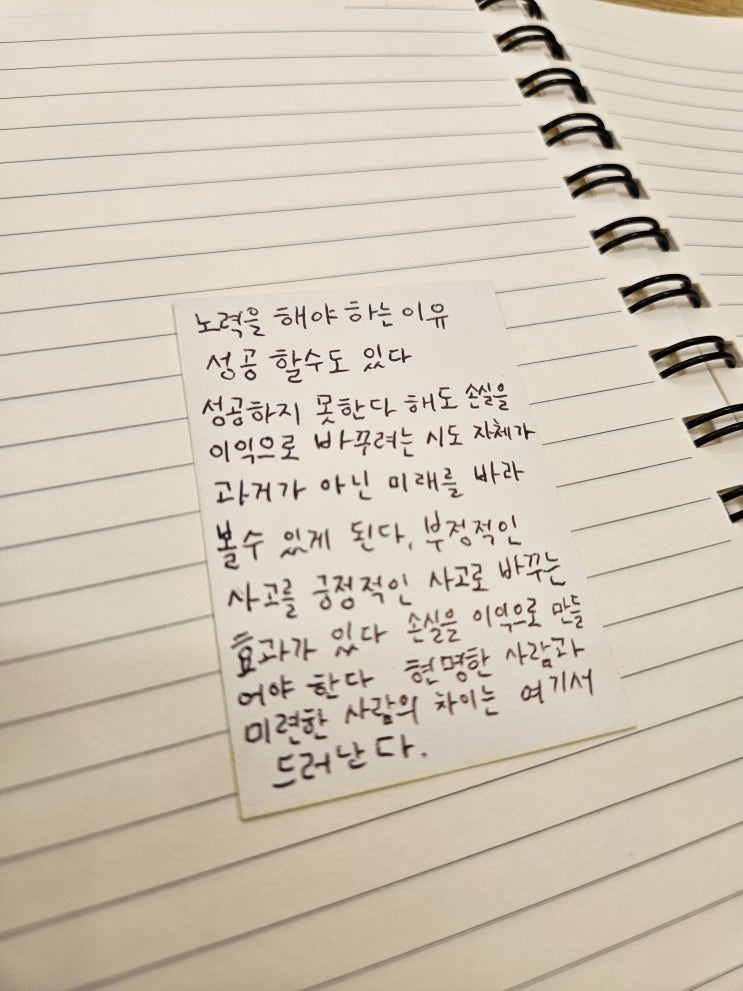 노력을 해야 하는 이유
성공 할수도 있다
성공하지 못한다 해도 손실을
이익으로 바꾸려는 시도 자체가
과거가 아닌 미래를 바라
볼수 있게 된다, 부정적인
사고를 긍정적인 사고로 바꾸는
효과가 있다 손실을 이익으로 만들
어야 한다 현명한 사람과
미련한 사람의 차이는 여기서
드러난다.